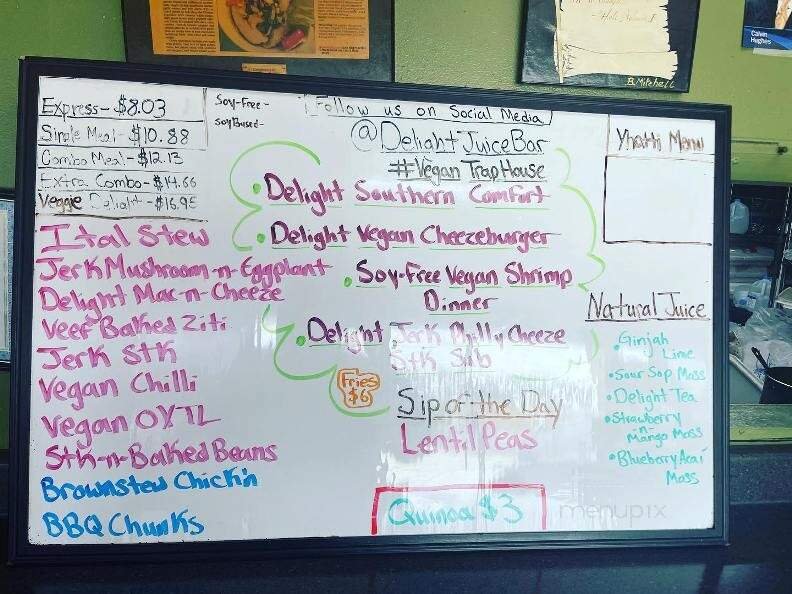 Express - $8.03
Single Meal - $10.88
Combo Meal - $12.13
Extra Combo - $14.66
Veggie Delight - $16.95
Ital Stew
Jerk Mushroom-n-Eggplant
Delight Mac-n-Cheeze
Veef Baked Ziti
Jerk Stk
Vegan Chilli
Vegan OXTL
Stk-n-Baked Beans
Brownstew Chick'n
BBQ Chunks
Soy-Free-
Soy Based-
Follow us on Social Media
@DelightJuiceBar
#Vegan TrapHouse
• Delight Southern Comfort
• Delight Vegan Cheezeburger
• Soy-Free Vegan Shrimp
Dinner
• Delight Jerk Philly Cheeze
Stk Sub
Fries
$6
Sip of the Day
Lentil Peas
Quinoa $3
Yhatti Menu
Natural Juice
• Ginjah
Lime
• Sour Sop Moss
• Delight Tea
• Strawberry
-n-
Mango Moss
• Blueberry Acai
Moss
B. Mitchell
Calvin
Hughes
menupix